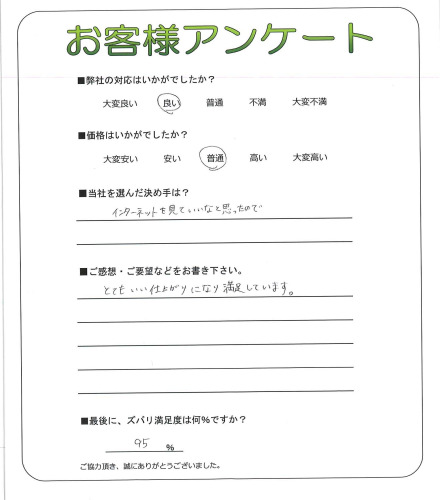 お客様アンケート
■弊社の対応はいかがでしたか？
大変良い 良い 普通 不満 大変不満
■価格はいかがでしたか？
大変安い 安い 普通 高い 大変高い
■当社を選んだ決め手は？
インターネットを見ていいなと思ったので
■ご感想・ご要望などをお書き下さい。
とてもいい仕上がりになり満足しています。
■最後に、ズバリ満足度は何%ですか？
95 %
ご協力頂き、誠にありがとうございました。